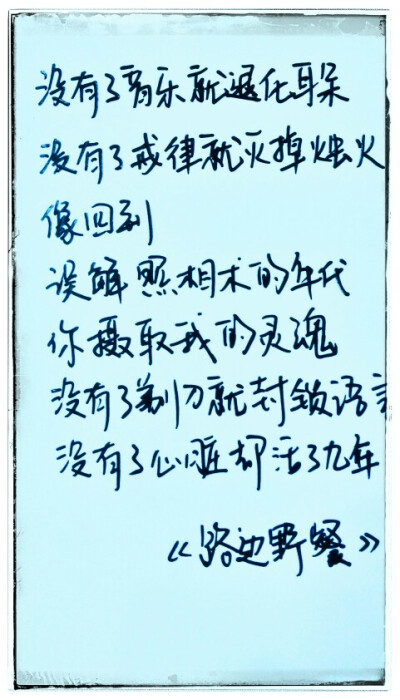 没有了音乐就退化耳朵
没有了戒律就灭掉烛火
像回到
误解照相术的年代
你摄取我的灵魂
没有了剃刀就封锁语言
没有了心脏却活了九年
《路边野餐》